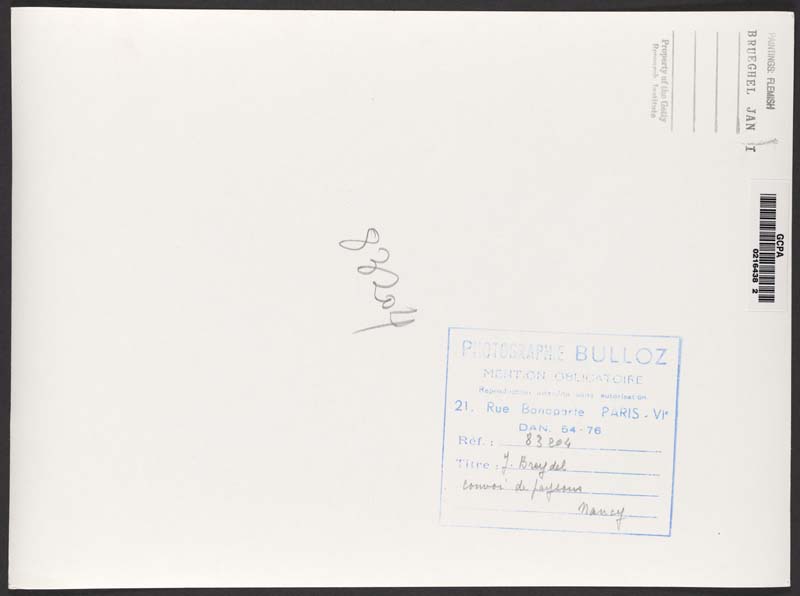 PAINTINGS: FLEMISH
BRUEGHEL JAN I
Property of the Getty
Research Institute
GCPA
0216438 2
83204
PHOTOGRAPHIE BULLOZ
MENTION OBLIGATOIRE
Reproduction interdite sans autorisation
21, Rue Bonaparte PARIS - VIe
DAN. 54-76
Réf. : 83204
Titre : J. Breydel
convoi de paysans
Nancy